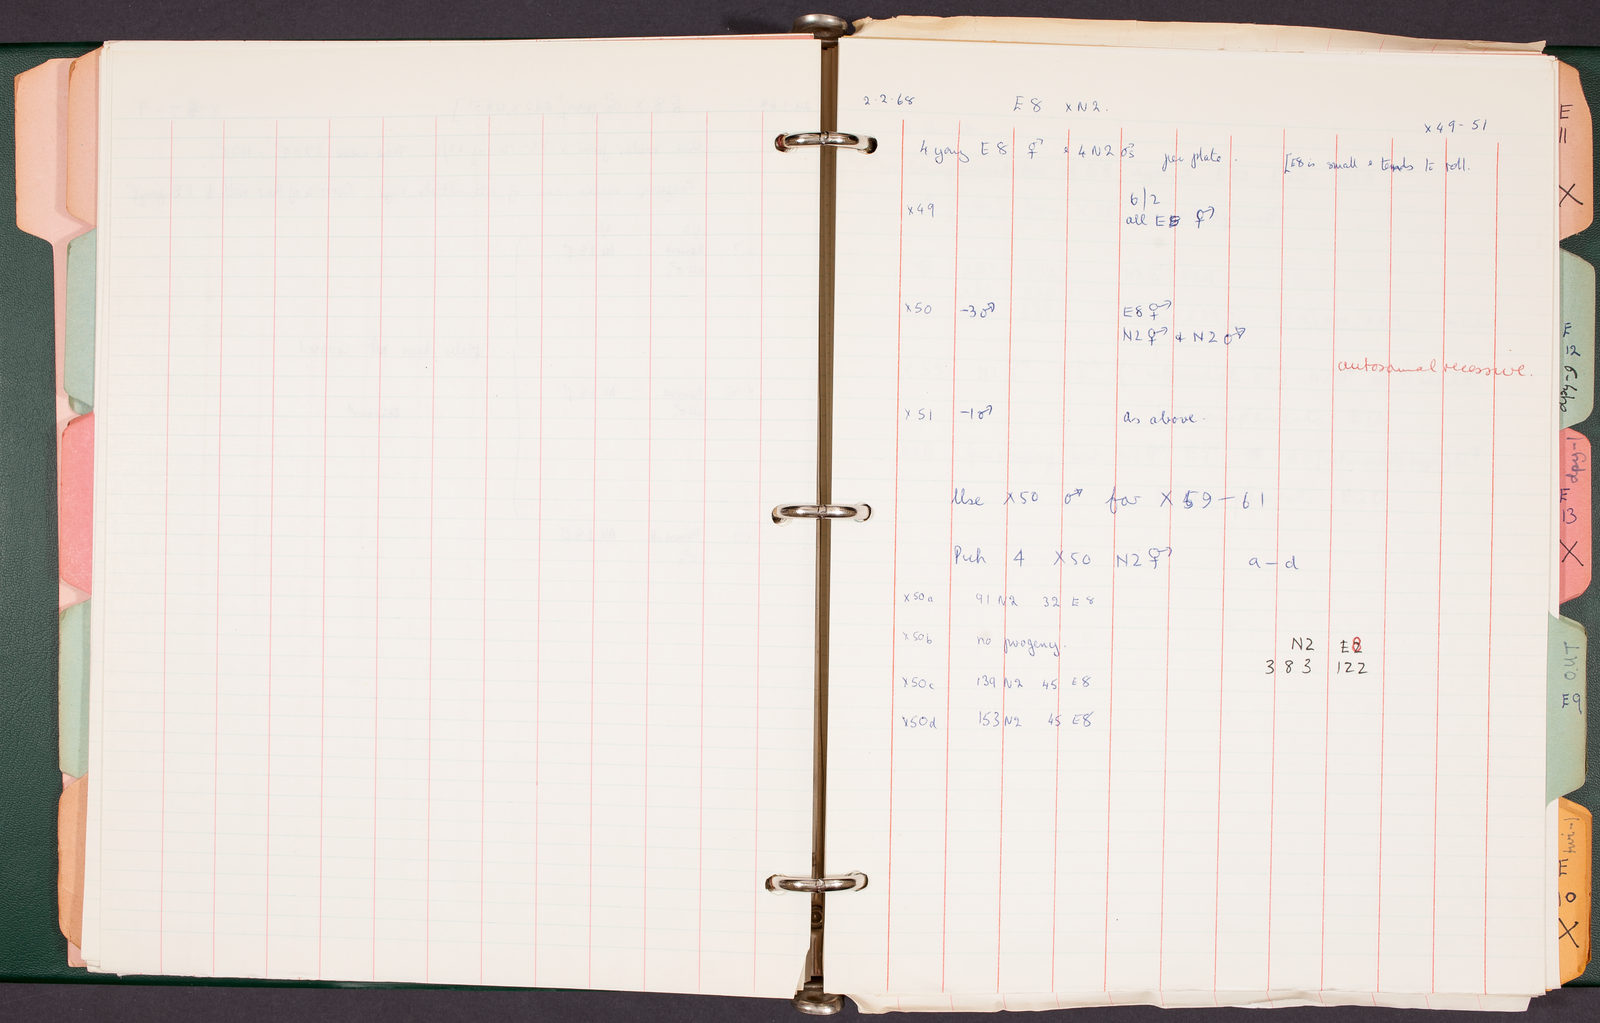 2.2.68 E8 x N2.
x49-51
4 young E8 ⚥ + 4 N2 ♂s per plate. [E8 is small & tends to roll.
x49 6/2
all E8 ⚥
x50 -3♂ E8 ⚥
N2 ⚥ + N2 ♂
autosomal recessive.
x51 -1♂ as above.
Use X50 ♂ for X59-61
Pick 4 X50 N2 ⚥ a-d
x50a 91 N2 32 E8
x50b no progeny.
N2 E8
383 122
x50c 139 N2 45 E8
x50d 153 N2 45 E8
E
11
X
E
12
dpy-9
dpy-1
E
13
X
OUT
E9
E
10
X